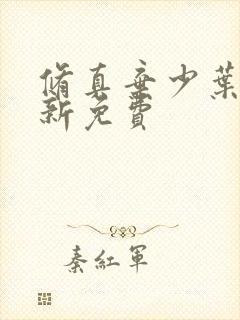 脩真棄少葉
新免費
秦紅軍